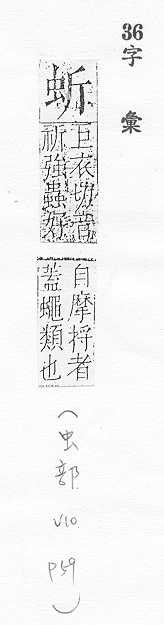 36字彙
蚚
巨衣切音
祈強蟲好
自摩捋者
蓋蠅類也
(虫部 V10 P59)